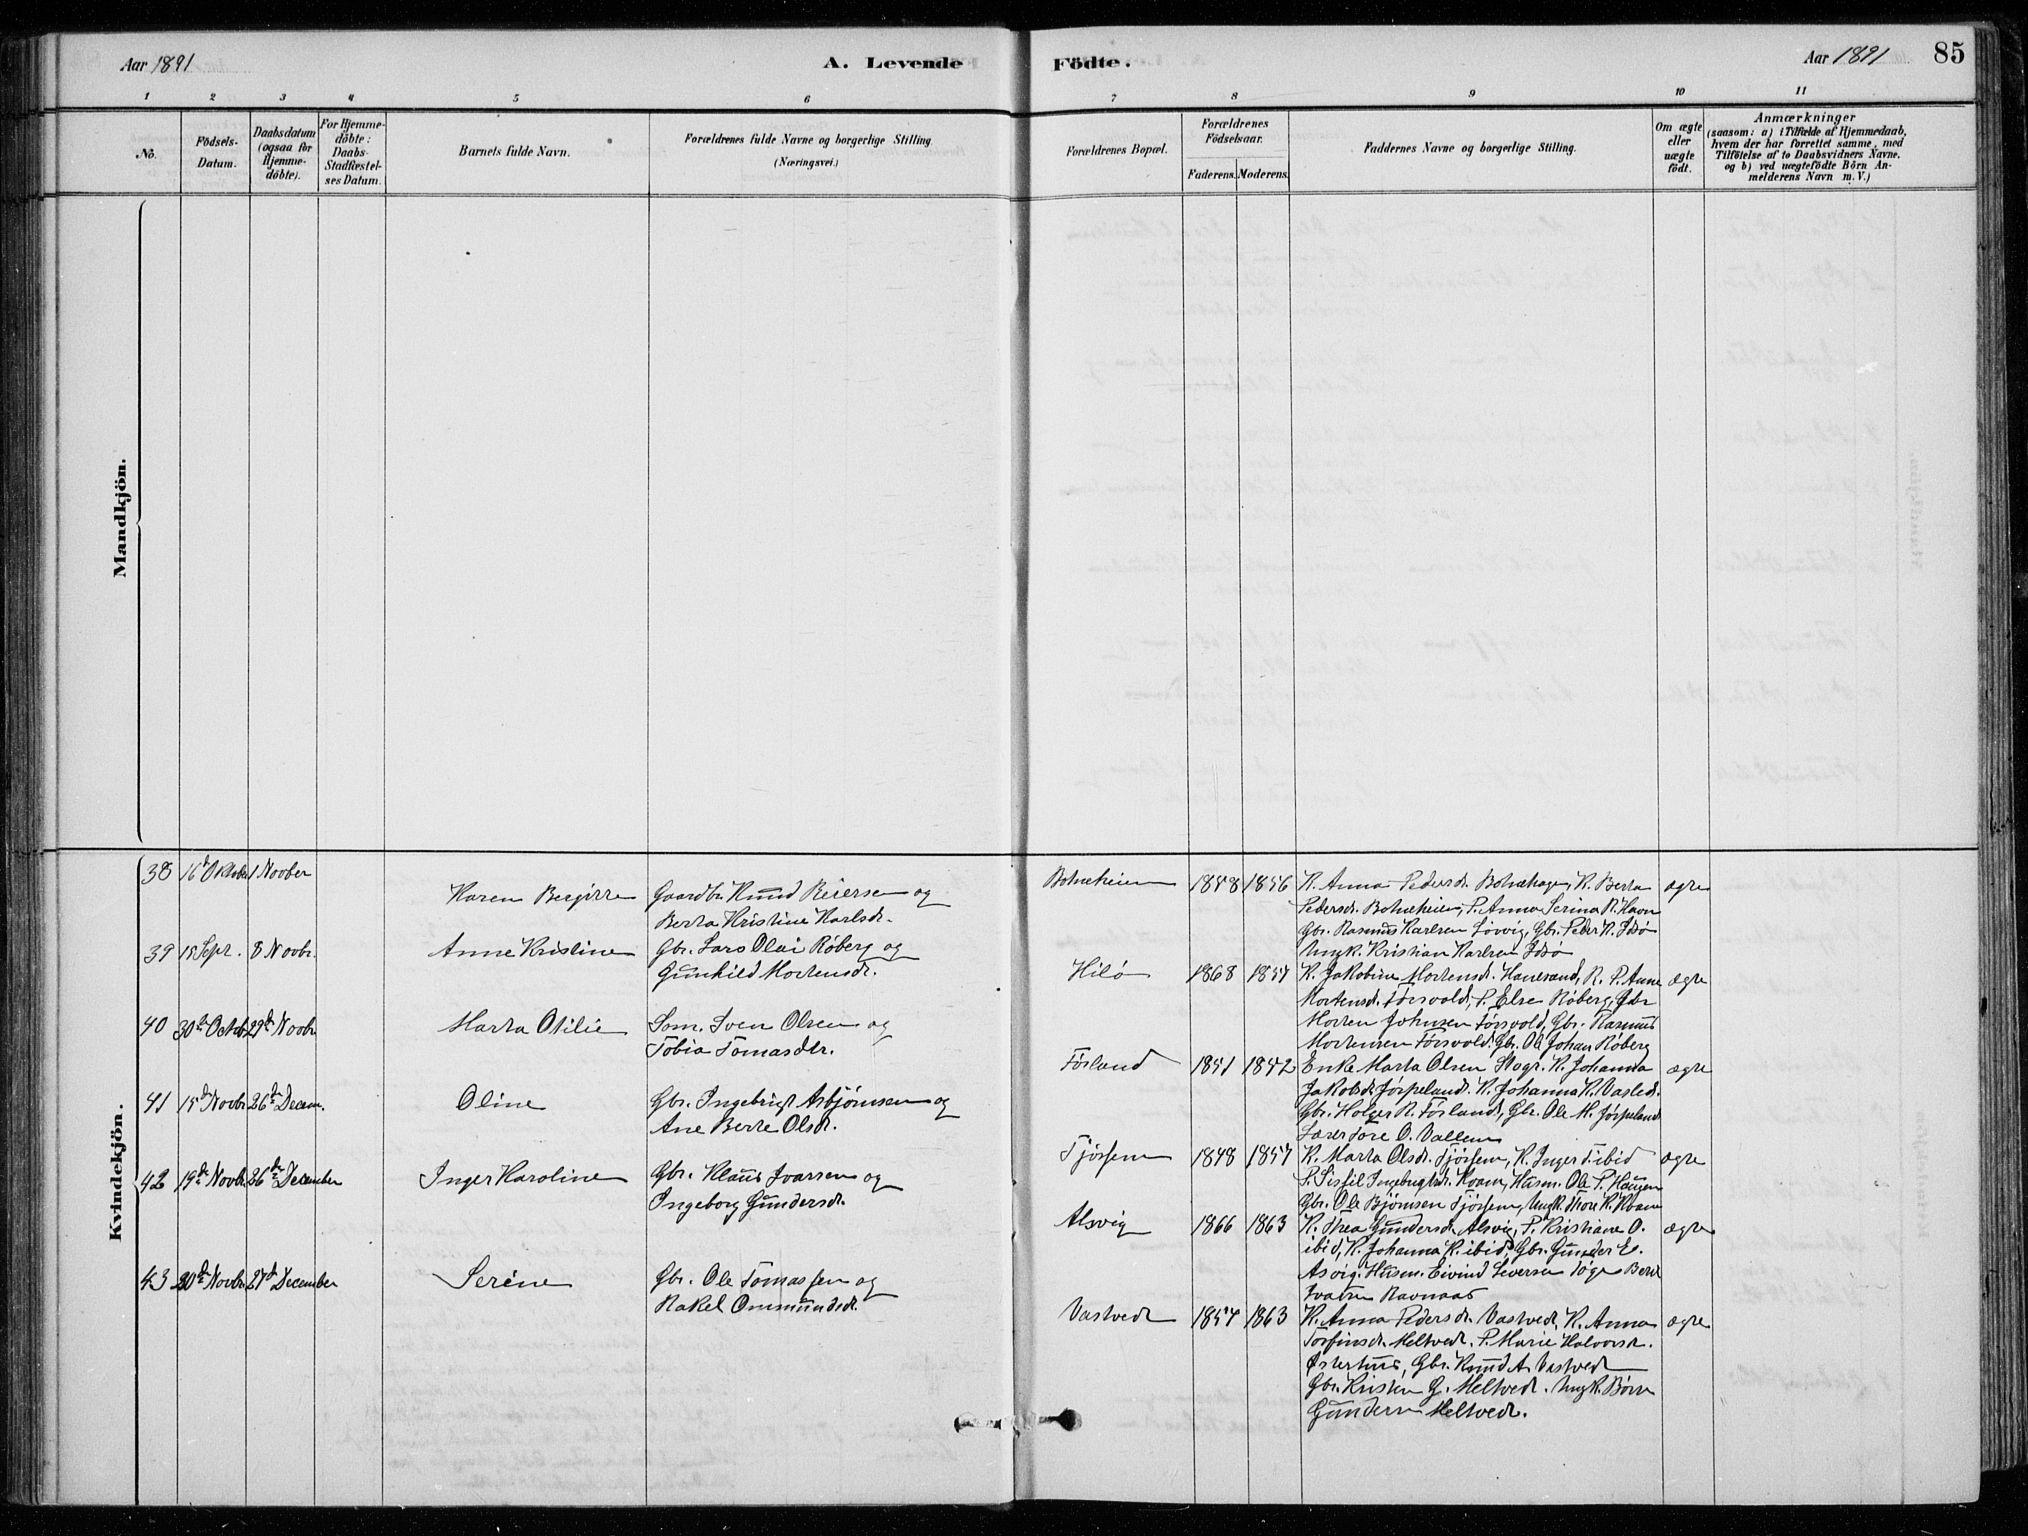 Aar 1891
A. Levende
Födte.
Aar 1891
85
1 2 3 4 5 6 7 8 9 10 11
No.
Födsels-
Datum.
Daabsdatum
(ogsaa for
Hjemme-
döbte).
For Hjemme-
döbte:
Daabs-
Stadfæstel-
ses Datum.
Barnets fulde Navn.
Forældrenes fulde Navne og borgerlige Stilling
(Næringsvei.)
Forældrenes Bopæl.
Forældrenes
Födselsaar.
Faderens. Moderens.
Faddernes Navne og borgerlige Stilling.
Om ægte
eller
uægte
födt.
Anmærkninger
(saasom: a) i Tilfælde af Hjemmedaab,
hvem der har forrettet samme, med
Tilföielse af to Daabsvidners Navne.
og b) ved uægtefödte Börn An-
melderens Navn m. V.)
Mandkjön.
Kvindekjön.
38 16de Oktober 1 Novber
Karen Bergitte Gaardbr. Knud Reiersen og
Berta Kristine Karlsdr.
Botneheien 1858 1856 K. Anna Pedersdr. Botnehagen, K. Berta ægte
Pedersdr. Botneheien, P. Anna Serina R. Havn
Gbr. Rasmus Karlsen Lovvig, Gbr. Peder K. Idsø
Ungk. Kristian Karlsen Idsø
39 15 Sept. 8 Novbr.
Anne Kristine Gbr. Lars Olai Røberg og
Gunhild Mortensdr.
Hilø 1868 1857 K. Jakobine Mortensdr. Hanesand, K. P. Anne ægte
Mortensdr. Førsvold, P. Else Røberg, Gbr
Morten Johnsen Førsvold, Gbr. Rasmus
Mortensen Førsvold. Gbr. Ole Johan Røberg
40 30te Octob. 29de Novbr
Marta Otilie Som. Sven Olsen og
Tobia Tomasdtr.
Førland 1851 1852 Enke Marta Olsen Stogr. K. Johanna ægte
Jakobsdr. Jørpeland. K. Johanna K. Vasledr.
Gbr. Holger R. Førland, Gbr. Ole M. Jørpeland
Lærer Tore O. Vallem
41 15de Novbr 26de Decem.
Oline Gbr. Ingebrigt Asbjørnsen og
Ane Berte Olsdr.
Tjøssem 1848 1857 K. Marta Olsdr. Tjøssem, K. Inger T. ibid ægte
P. Sissil Ingebrigtsdr. Hoam, Husm. Ole P. Haugen
Gbr. Ole Bjørnsen Tjøssem, Ungk. Thore K. Hoam
42 19de Novbr. 26de December
Inger Karoline Gbr. Klaus Ivarsen og
Ingeborg Gundersdr.
Alsvig 1866 1863 K. Thea Gundersdr. Alsvig, P. Kristiane O. ægte
ibid, K. Johanna K. ibid, Gbr. Gunder E.
Asvig. Husm. Eivind Seversen Tøge Bernt
Ivarsen Ravnaas
43 20de Novbr. 27de December
Serine Gbr. Ole Tomassen og
Rakel Ommundsdr.
Vastvedt 1857 1863 K. Anna Pedersdr. Vastvedt, K. Anna ægte
Torfinsdr. Meltvedt. P. Marie Halvorsdr.
Østerhus, Gbr. Knud A. Vastvedt
Gbr. Kristen G. Meltvedt. Ungk. Børre
Gundersen Meltvedt.